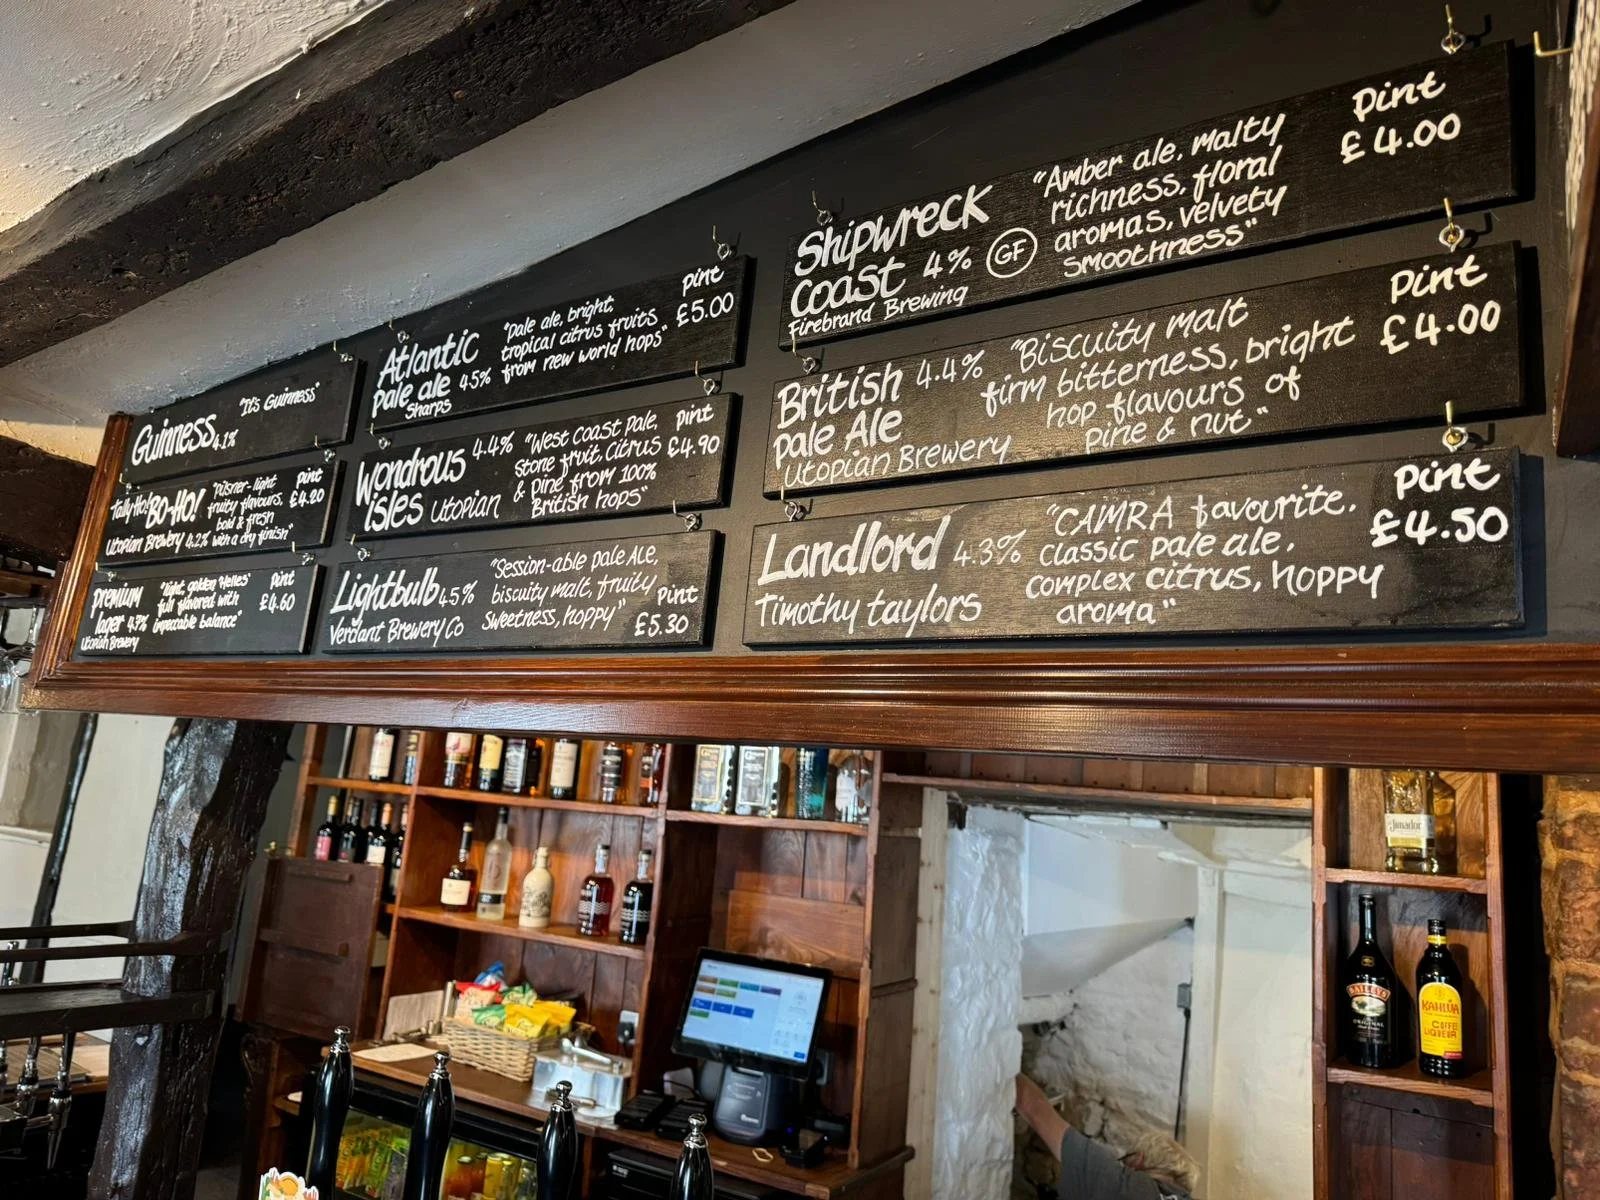 Guinness 4.1%
"It's Guinness"
Tally-Ho! BO-HO!
Utopian Brewery 4.2%
"pilsner-light
fruity flavours,
bold & fresh
with a dry finish"
pint
£4.20
premium
lager 4.7%
Utopian Brewery
"light, golden 'Helles'
full flavored with
impeccable balance"
Pint
£4.60
Atlantic
pale ale 4.5%
Sharps
"pale ale, bright,
tropical citrus fruits
from new world hops"
pint
£5.00
Wondrous
isles Utopian
4.4%
"West coast pale,
stone fruit, citrus
& pine from 100%
British hops"
pint
£4.90
Lightbulb 4.5%
Verdant Brewery Co
"Session-able pale Ale,
biscuity malt, fruity
sweetness, hoppy"
Pint
£5.30
Shipwreck
coast 4% GF
Firebrand Brewing
"Amber ale, malty
richness, floral
aromas, velvety
smoothness"
Pint
£4.00
British 4.4%
pale Ale
Utopian Brewery
"Biscuity malt
firm bitterness, bright
hop flavours of
pine & nut"
Pint
£4.00
Landlord 4.3%
Timothy taylors
"CAMRA favourite,
classic pale ale,
complex citrus, hoppy
aroma"
Pint
£4.50
BAILEYS
ORIGINAL
KAHLÚA
COFFEE
LIQUEUR